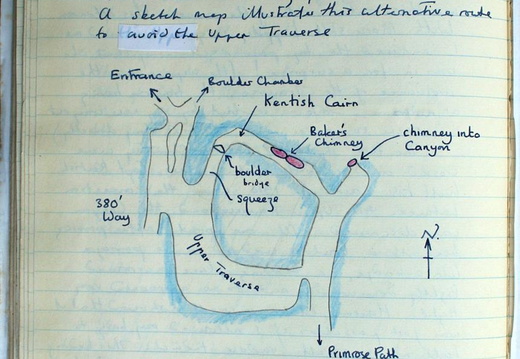 A sketch map illustrates this alternative route
to avoid the Upper Traverse
Entrance
Boulder Chamber
Kentish Cairn
Baker's
Chimney
chimney into
Canyon
boulder
bridge
squeeze
380'
Way
Upper Traverse
N.
Primrose Path